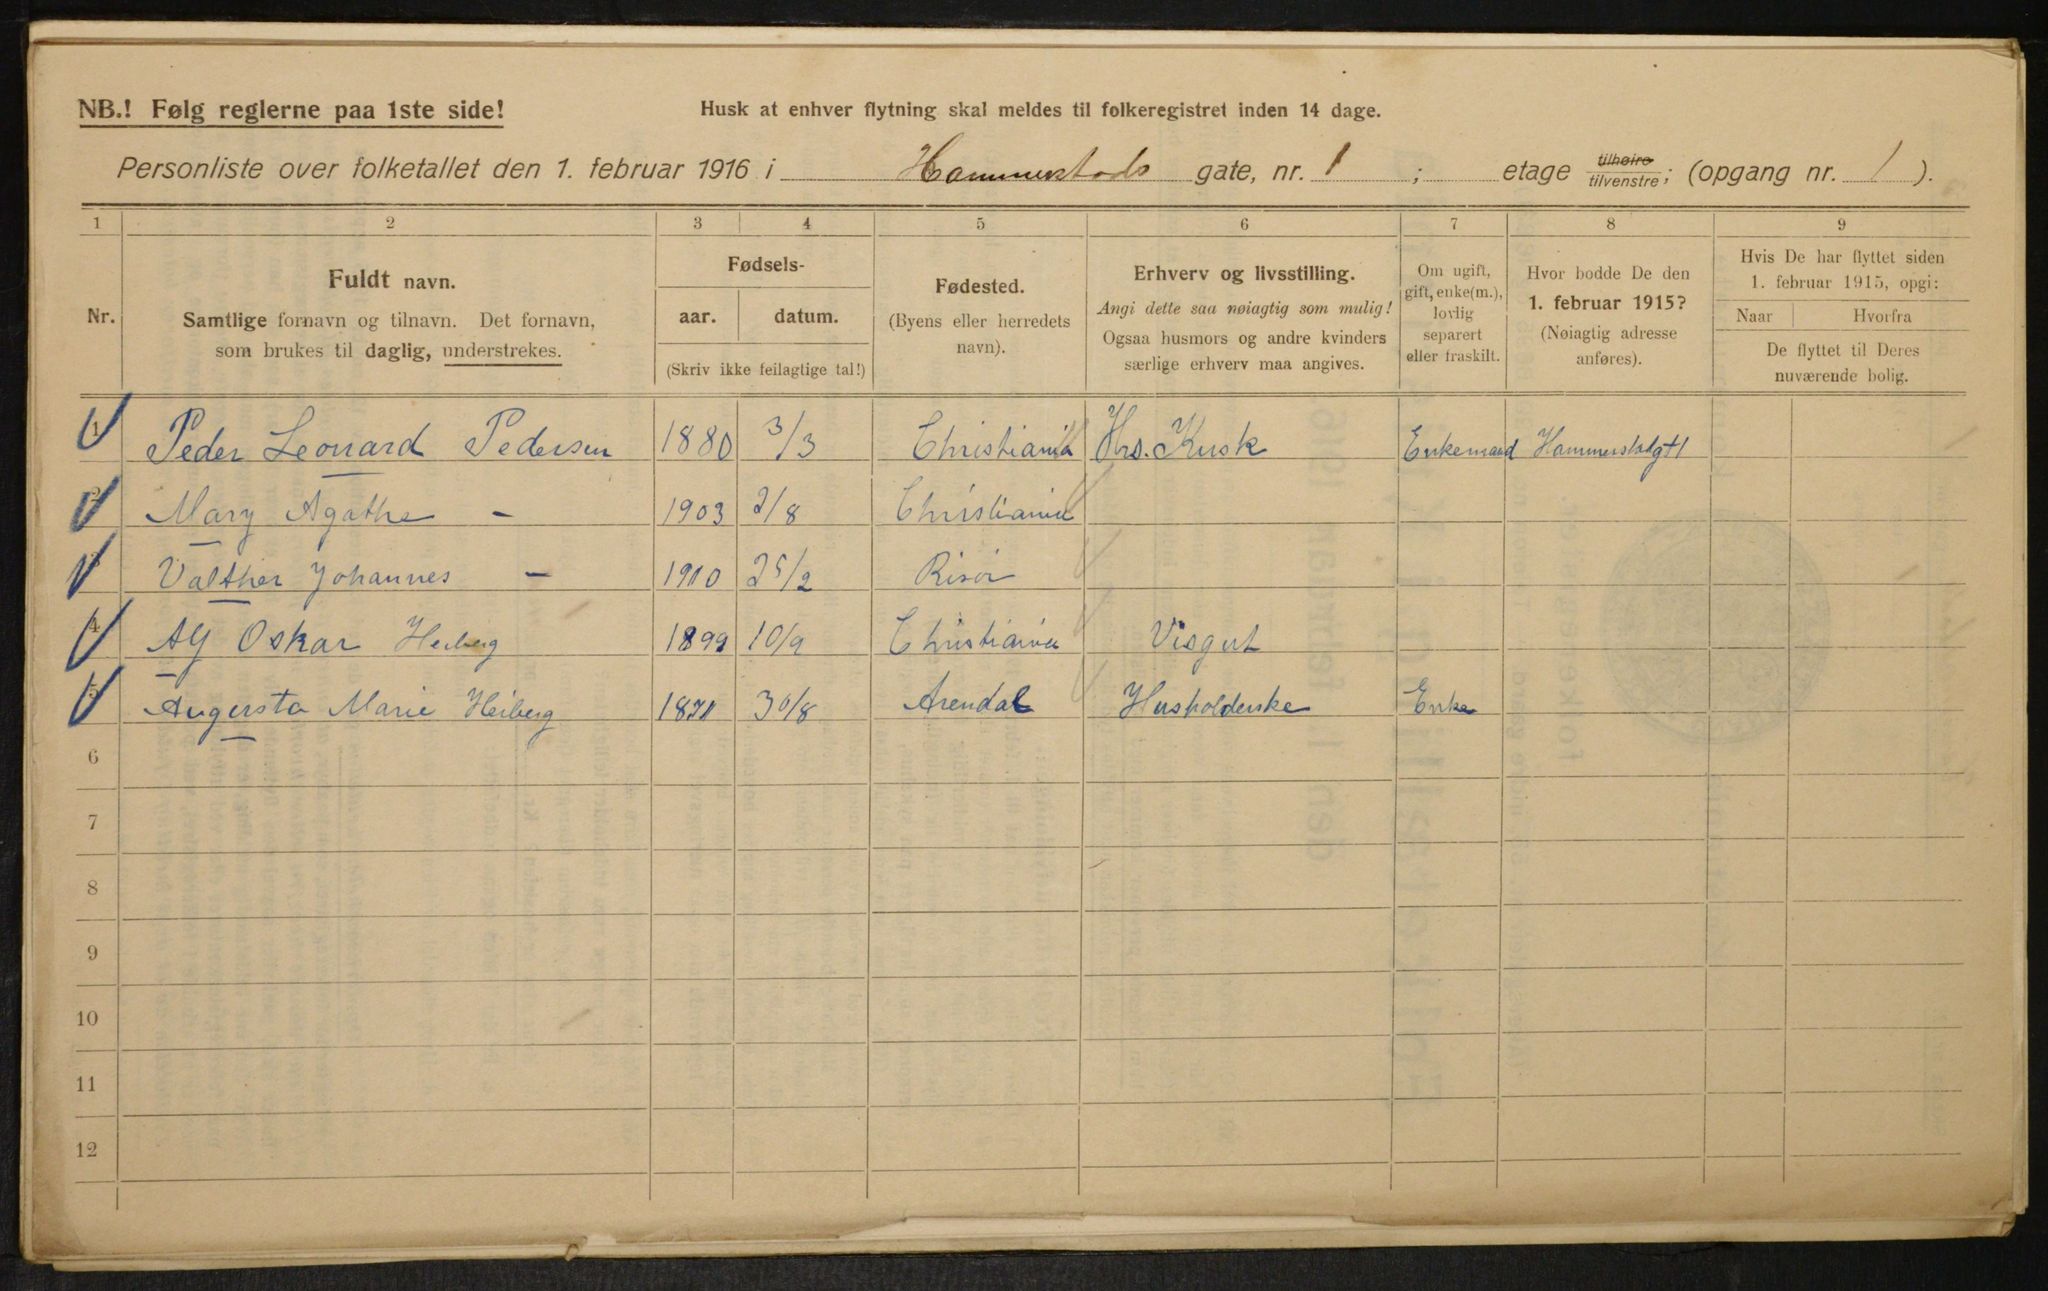 NB.! Følg reglerne paa 1ste side!
Husk at enhver flytning skal meldes til folkeregistret inden 14 dage.
Personliste over folketallet den 1. februar 1916 i Hammerstads gate, nr. 1 ; etage tilhøire tilvenstre; (opgang nr. 1 ).
1 2 3 4 5 6 7 8 9
Nr.
Fuldt navn.
Samtlige fornavn og tilnavn. Det fornavn,
som brukes til daglig, understrekes.
Fødsels-
aar. datum.
(Skriv ikke feilagtige tal!)
Fødested.
(Byens eller herredets
navn).
Erhverv og livsstilling.
Angi dette saa nøiagtig som mulig!
Ogsaa husmors og andre kvinders
særlige erhverv maa angives.
Om ugift,
gift, enke(m.),
lovlig
separert
eller fraskilt.
Hvor bodde De den
1. februar 1915?
(Nøiagtig adresse
anføres).
Hvis De har flyttet siden
1. februar 1915, opgi:
Naar Hvorfra
De flyttet til Deres
nuværende bolig.
1 Peder Leonard Pedersen 1880 3/3 Christiania Hrs. Kusk Enkemand Hammerstadgt 1
2 Mary Agathe - 1903 2/8 Christiania
3 Valther Johannes - 1910 25/2 Risör
4 Alf Oskar Heiberg 1899 10/9 Christiania Visgut
5 Augusta Marie Heiberg 1871 30/8 Arendal Husholderske Enke
6
7
8
9
10
11
12